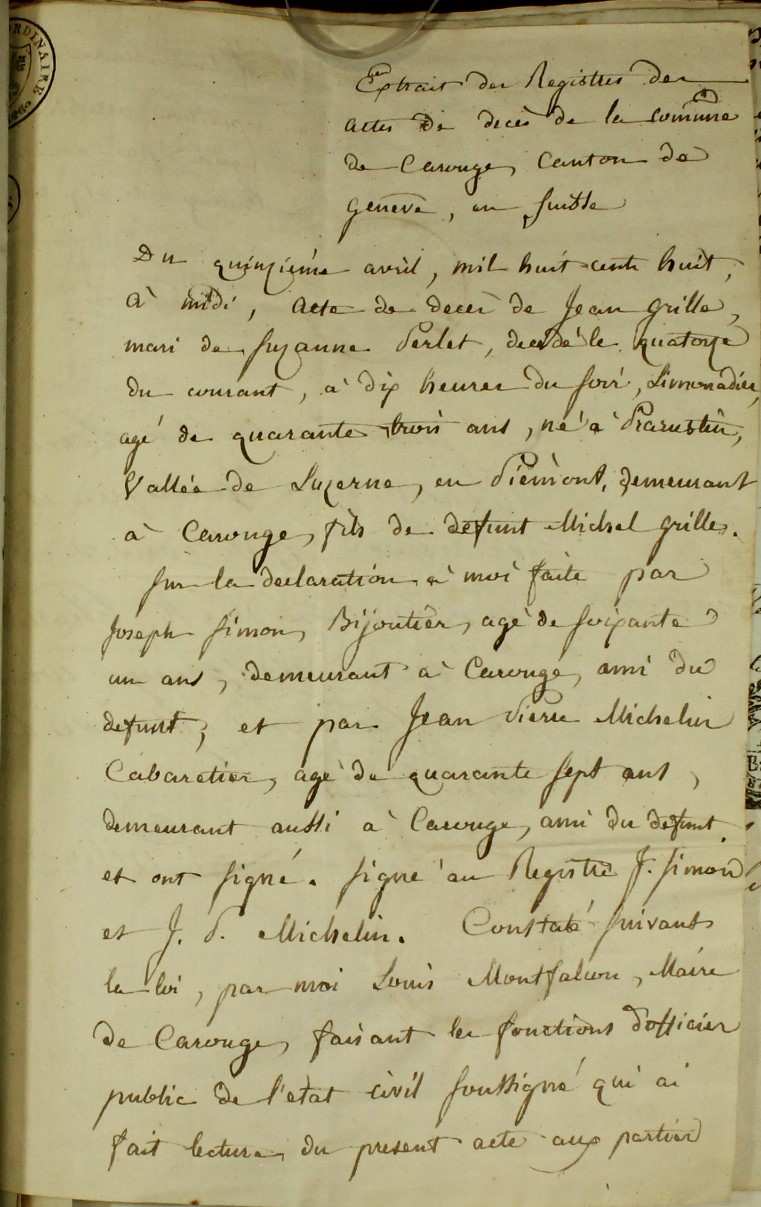 ORDINAIRE
Extrait des Registres des
actes de decès de la commune
de Carouge, Canton de
Genève, en Suisse
Du quinzième avril, mil huit cents huit,
à midi, Acte de decès de Jean Grille,
mari de Suzanne Perlet, decedé le quatorze
du courant, à dix heures du soir, Limonadier,
agé de quarante trois ans, né à Prarustin,
Vallée de Luzerne, en Piémont, demeurant
à Carouge, fils de defunt Michel Grille.
Sur la declaration à moi faite par
Joseph Simon, Bijoutier, agé de soixante
un ans, demeurant à Carouge, ami du
defunt, et par Jean Pierre Michelin
Cabaretier, agé de quarante sept ans,
demeurant aussi à Carouge, ami du defunt
et ont signé. Signé au Registre J. Simon
et J. P. Michelin. Constaté suivant
la loi, par moi Louis Montfalcon, Maire
de Carouge, faisant les fonctions d'officier
public de l'etat civil soussigné qui ai
fait lecture du present acte aux parties